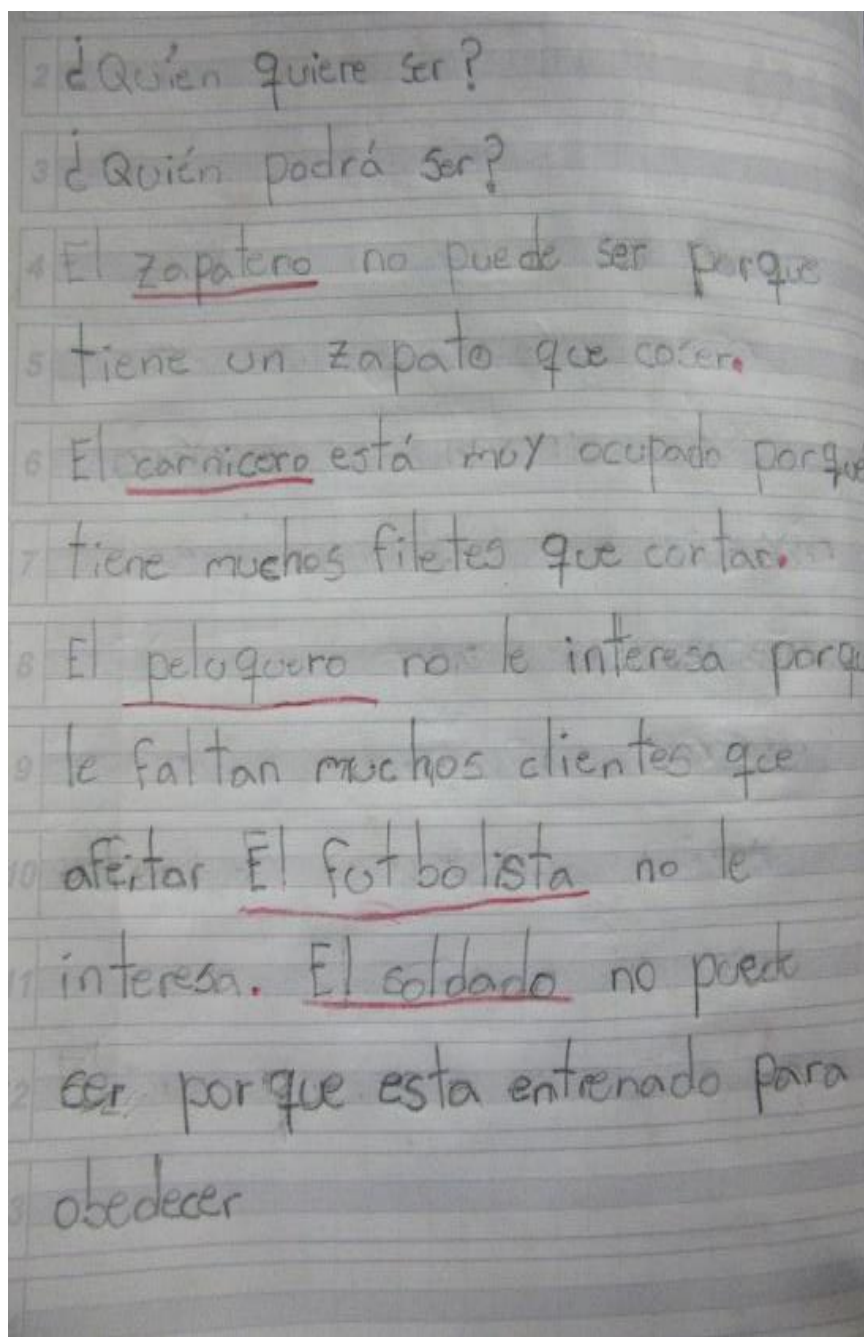 2 ¿Quién quiere ser?
3 ¿Quién podrá ser?
4 El zapatero no puede ser porque
5 tiene un zapato que coser.
6 El carnicero está muy ocupado porque
7 tiene muchos filetes que cortar.
8 El peluquero no le interesa porqu
9 le faltan muchos clientes que
10 afeitar El futbolista no le
11 interesa. El soldado no puede
2 ser porque esta entrenado para
3 obedecer